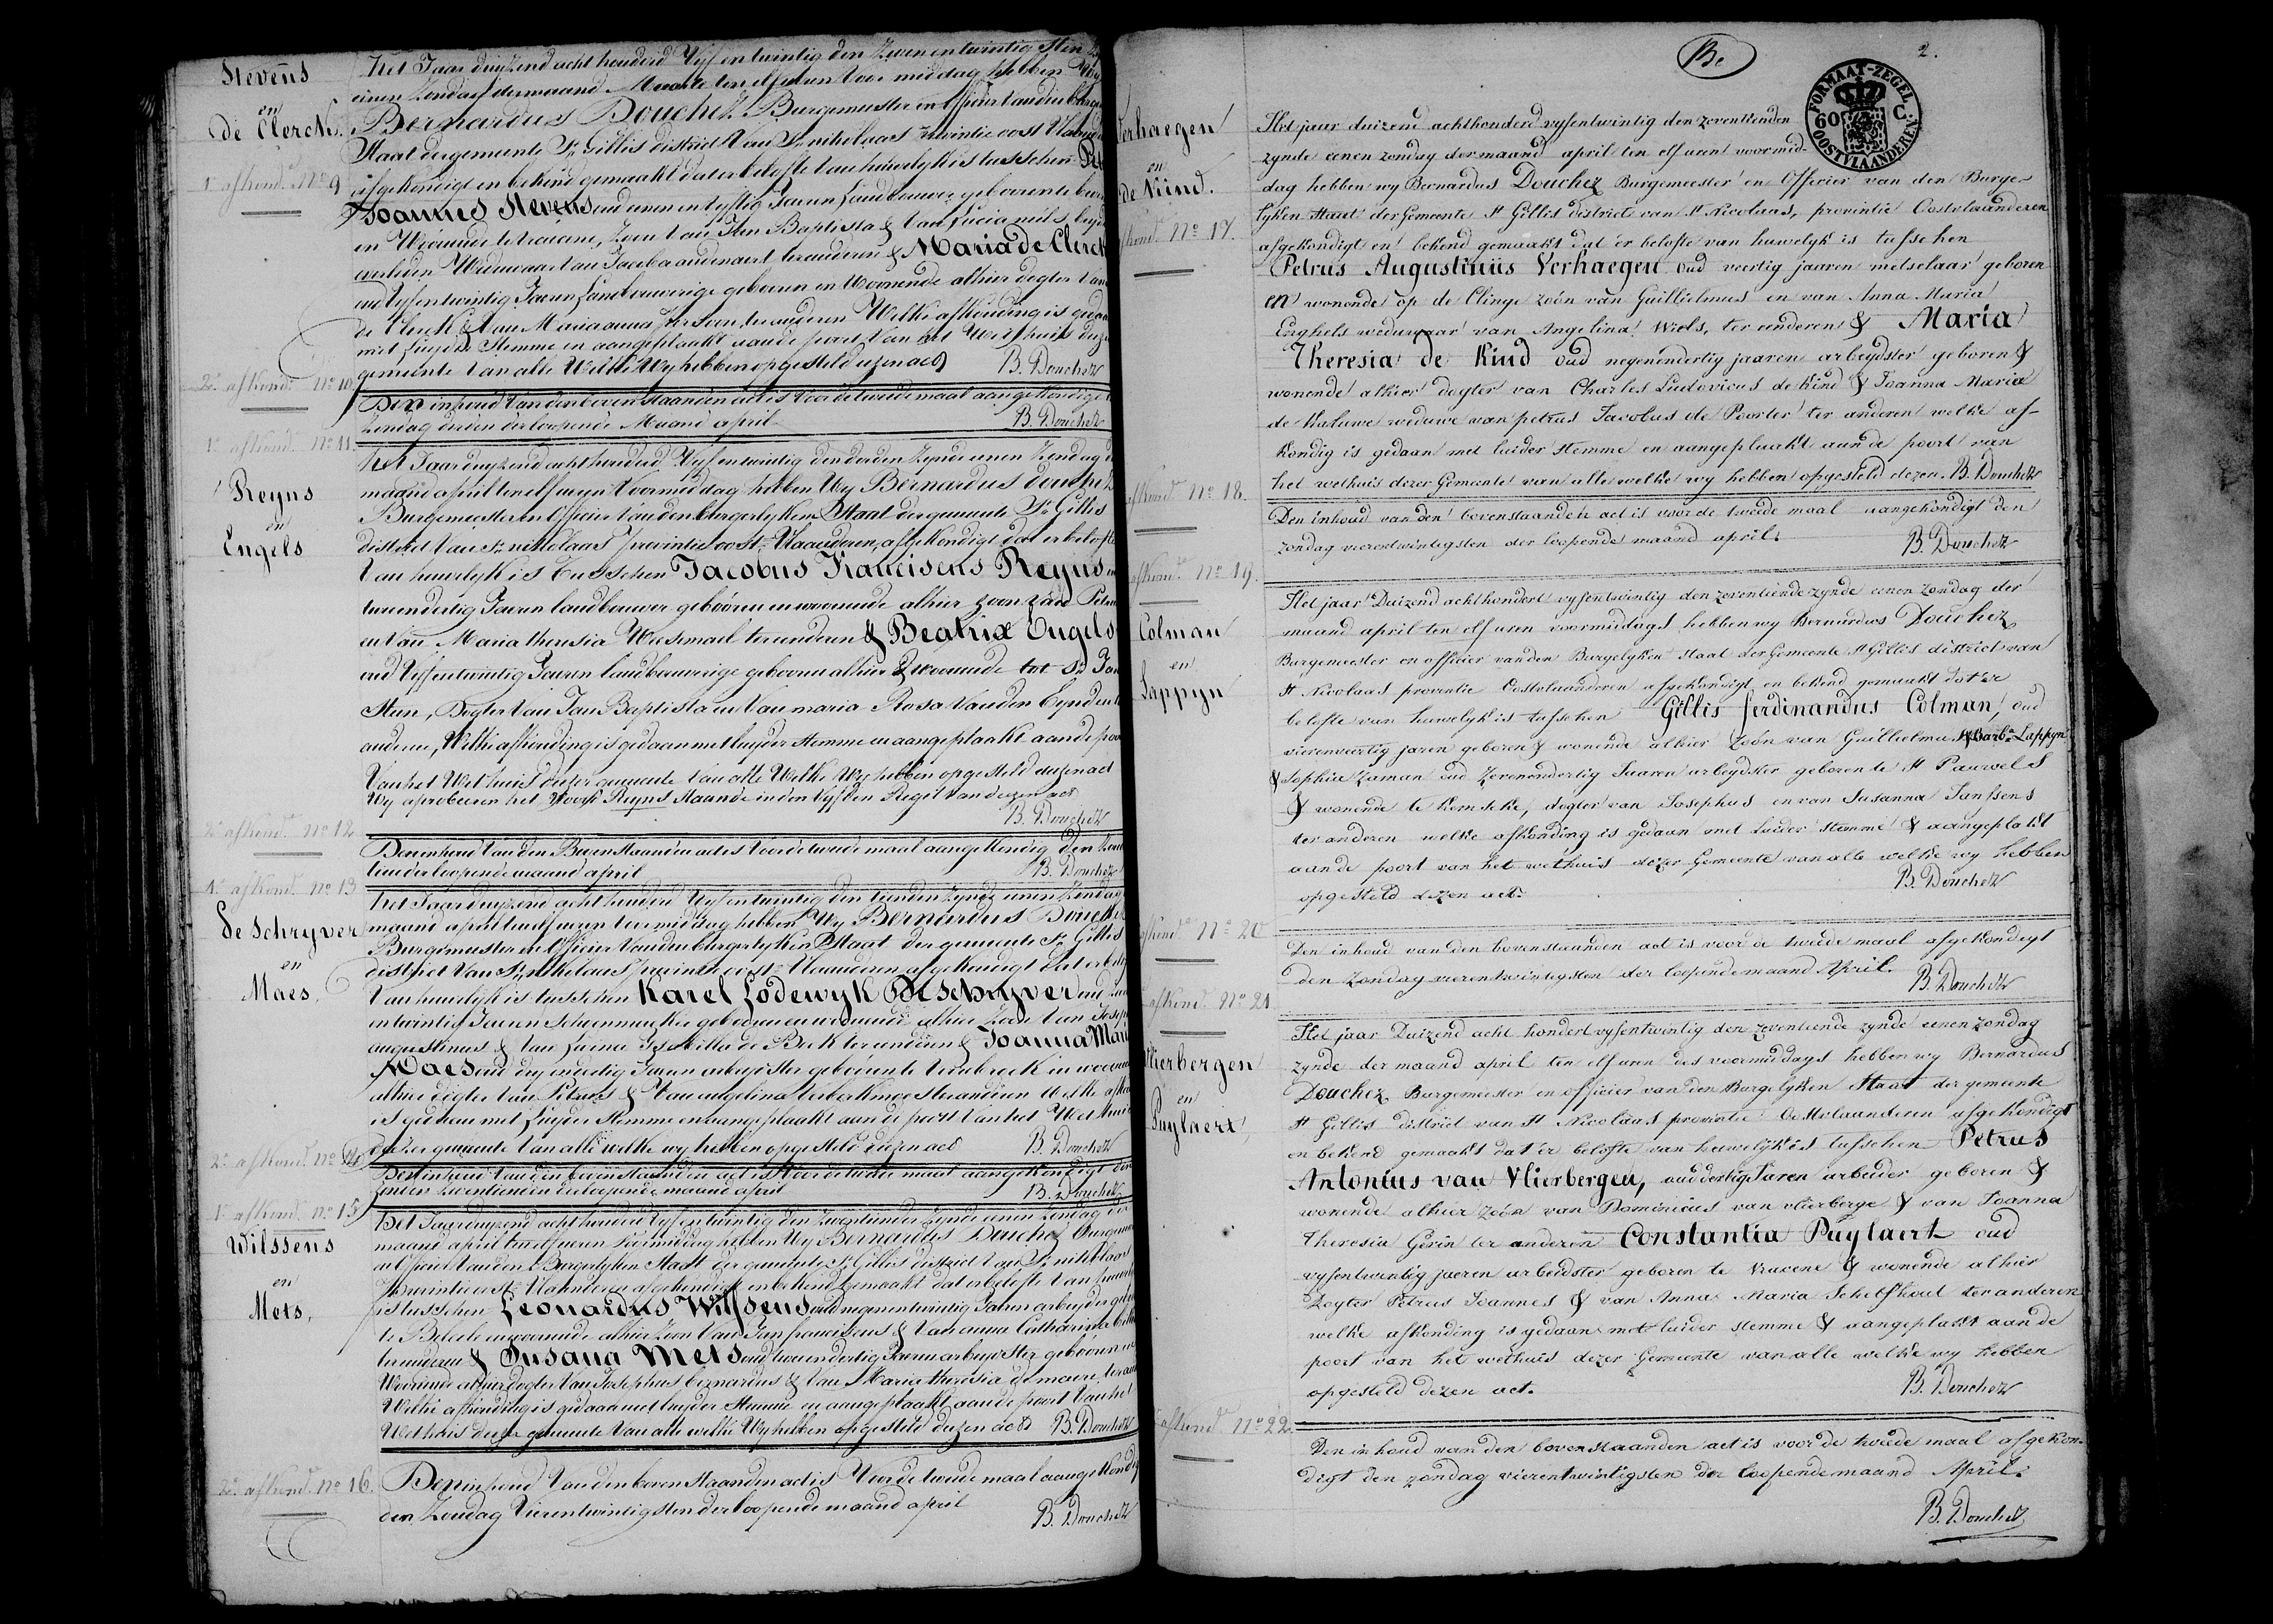 Stevens
en
de Clerck.
1e afkond. No 9
Het Jaar duyzend acht honderd Vyf en twintig den Zeven en twintig sten
eenen Zondag der maand Maarte ten elf uren Voor middag hebben Wy
Bernardus Douchez Burgemeester en Officier Van den
Staat der gemeente St Gillis district Van St nikolaas provintie oost
afgekondigt en bekend gemaakt dat er belofte Van huwelyk is tusschen
Joannes Stevens oud eenen en vyftig Jaeren Landbouwer geboren te
en Woonende te Vracene, Zoon Van Jan Baptista & Van Lucia
overleden Weduwaar Van Jacoba audenaert ter anderen & Maria de Clerck
oud Vyf en twintig Jaeren Landbouwerige geboren en Woonende alhier dogter Van
de Clerck & Van Maria anna ter anderen Welke afkonding is gedaan
met luyder Stemme en aangeplaakt aan de poort Van het Wethuis
gemeente Van alle Welke Wy hebben opgesteld dezen act B. Douchez
2e afkond. No 10
Den inhoud Van den boven staanden act is Voor de tweede maal aangekondigt
Zondag derden der loopende Maand april B. Douchez
1e afkond. No 11.
Reyns
en
Engels
Het Jaar duyzend acht honderd Vyf en twintig den derden Zynde eenen Zondag
maand april ten elf uren Voormiddag hebben Wy Bernardus Douchez
Burgemeester en Officier Van den burgerlyken Staat der gemeente St Gillis
district Van St nikolaas provintie oost-Vlaanderen, afgekondigt dat er belofte
Van huwelyk is tusschen Jacobus Franciscus Reyns
twee en dertig Jaeren landbouwer geboren en woonende alhier zoon van
en Van Maria theresia Weesmael ter anderen & Beatrix Engels
oud Vyf en twintig Jaeren landbouwerige geboren alhier & woonende tot St Jan
Steen, Dogter Van Jan Baptista en Van maria Rosa Van den Eynden
anderen, Welke afkonding is gedaan met luyder stemme en aangeplaakt aan de
Van het Wethuis dezer gemeente Van alle Welke Wy hebben opgesteld dezen act
Wy aprobeeren het Woord Reyns Staande in den Vyfden Regel Van dezen act
B. Douchez
2e afkond. No 12
Den inhoud Van den Boven Staanden act is Voor de tweede maal aangekondig den
tienden der loopende maand april B. Douchez
1e afkond. No 13
de Schryver
en
Maes.
Het Jaar duyzend acht honderd Vyf en twintig den tienden Zynde eenen Zondag
maand april ten elf uren Voormiddag hebben Wy Bernardus Douchez
Burgemeester en Officier Van den burgerlyken Staat der gemeente St Gillis
district Van St nikolaas provintie oost-Vlaanderen afgekondigt dat er
Van huwelyk is tusschen Karel Lodewyk De Schryver oud
en twintig Jaeren Schoenmaeker geboren en woonende alhier Zoon Van
augustinus & Van de Beck ter anderen & Joanna
Maes oud dry en dertig Jaeren arbeydster geboren te en woonende
alhier dogter Van Petrus & Van angelina ter anderen Welke
is gedaan met luyder Stemme en aangeplaakt aan de poort Van het Wethuis
dezer gemeente Van alle welke wy hebben opgesteld dezen act B. Douchez
2e afkond. No 14
Den inhoud Van den boven staanden act is Voor de tweede maal aangekondigt den
Zondag Zeventienden der loopende maand april B. Douchez
1e afkond. No 15
Wilssens
en
Mets,
Het Jaar duyzend acht honderd Vyf en twintig den Zeventienden Zynde eenen Zondag der
maand april ten elf uren Voormiddag hebben Wy Bernardus Douchez
officier Van den Burgerlyken Staat der gemeente St Gillis district Van St nikolaas
provintie oost-Vlaanderen afgekondigt en bekend gemaakt dat er belofte Van
is tusschen Leonardus Wilssens oud negen en twintig Jaeren arbeyder
te Belcele en woonende alhier Zoon Van Jan franciscus & Van anna Catharina
ter anderen & Susana Mets oud twee en dertig Jaeren arbeydster geboren
Woonende alhier dogter Van Josephus bernardus & Van Maria theresia de maere
Welke afkonding is gedaan met luyder Stemme en aangeplaakt aan de poort Van het
Wethuis dezer gemeente Van alle welke Wy hebben opgesteld dezen act B. Douchez
2e afkond. No 16.
Den inhoud Van den boven staanden act is Voor de tweede maal aangekondigt
den Zondag Vierentwintigsten der loopende maand april
B. Douchez
2.
FORMAAT-ZEGEL
60 C.
OOSTVLAANDEREN
Verhaegen
en
de Kind.
afkond. No 17.
Het jaar duizend achthonderd vyfentwintig den zeventienden
zynde eenen zondag der maand april ten elf uren voormid-
dag hebben wy Bernardus Douchez Burgemeester en Officier van den Burge-
lyken Staat der Gemeente St Gillis district van St Nicolaas, provintie Oostvlaanderen
afgekondigt en bekend gemaakt dat er belofte van huwelyk is tusschen
Petrus Augustinus Verhaegen oud veertig jaaren metselaar geboren
en wonende op de Clinge zoón van Guillielmus en van Anna Maria
Enghels weduwaar van Angelina Wiels, ter eenderen & Maria
Theresia de Kind oud negenendertig jaaren arbeydster geboren &
wonende alhier dogter van Charles Ludovicus de Kind & Joanna Maria
de Kaluwe weduwe van petrus Jacobus de Poorter ter anderen welke af-
kondig is gedaan met luider stemme en aangeplaakt aan de poort van
het wethuis dezer Gemeente van alle welke wy hebben opgesteld dezen. B. Douchez
afkond. No 18.
Den inhoud van den bovenstaande act is voor de tweede maal aangekondigt den
zondag vierentwintigsten der loopende maand april.
B. Douchez
afkond. No 19.
Colman
en
Lappyn
Het jaar Duizend achthondert vyfentwintig den zeventiende zynde eenen zondag der
maand april ten elf uren voormiddags hebben wy Bernardus Douchez
Burgemeester en officier van den Burgelyken staat der Gemeente St Gillis district van
St Nicolaas provintie Oostvlaanderen afgekondigt en bekend gemaakt dat er
belofte van huwelyk is tusschen Gillis ferdinandus Colman, oud
vierenveertig jaren geboren & wonende alhier zoón van Guillielmus & Barba Lappyn
& Sophia Zaman oud Zevenendertig Jaaren arbeydster geboren te St Pauwels
& wonende te Kemseke, dogter van Josephus en van Susanna Janssens
ter anderen welke afkonding is gedaan met luider stemme & aangeplakt
aan de poort van het wethuis dezer Gemeente van alle welke wy hebben
opgesteld dezen act.
B. Douchez
afkond. No 20
Den inhoud van den bovenstaanden act is voor de tweede maal afgekondigt
den zondag vierentwintigsten der loopende maand April.
B. Douchez
afkond. No 21
Vlierbergen
en
Puylaert,
Het jaar Duizend acht hondert vyfentwintig den zeventiende zynde eenen zondag
zynde der maand april ten elf uren des voormiddags hebben wy Bernardus
Douchez Burgemeester en officier van den Burgelyken Staat der gemeente
St Gillis district van St Nicolaas provintie Oostvlaanderen afgekondigt
en bekend gemaakt dat er belofte van huwelyk is tusschen Petrus
Antonius van Vlierbergen, oud dertig Jaren arbeider geboren &
wonende alhier zoón van Dominicus van vlierberge & van Joanna
Theresia Gerin ter anderen Constantia Puylaert oud
vyfentwintig jaeren arbeidster geboren te Vracene & wonende alhier
Dogter Petrus Joannes & van Anna Maria Schelfhout ter anderen
welke afkonding is gedaan met luider stemme & aangeplakt aan de
poort van het wethuis dezer Gemeente van alle welke wy hebben
opgesteld dezen act.
B. Douchez
afkond. No 22.
Den inhoud van den bovenstaanden act is voor de tweede maal afgekon-
digt den zondag vierentwintigsten der loopende maand April.
B. Douchez